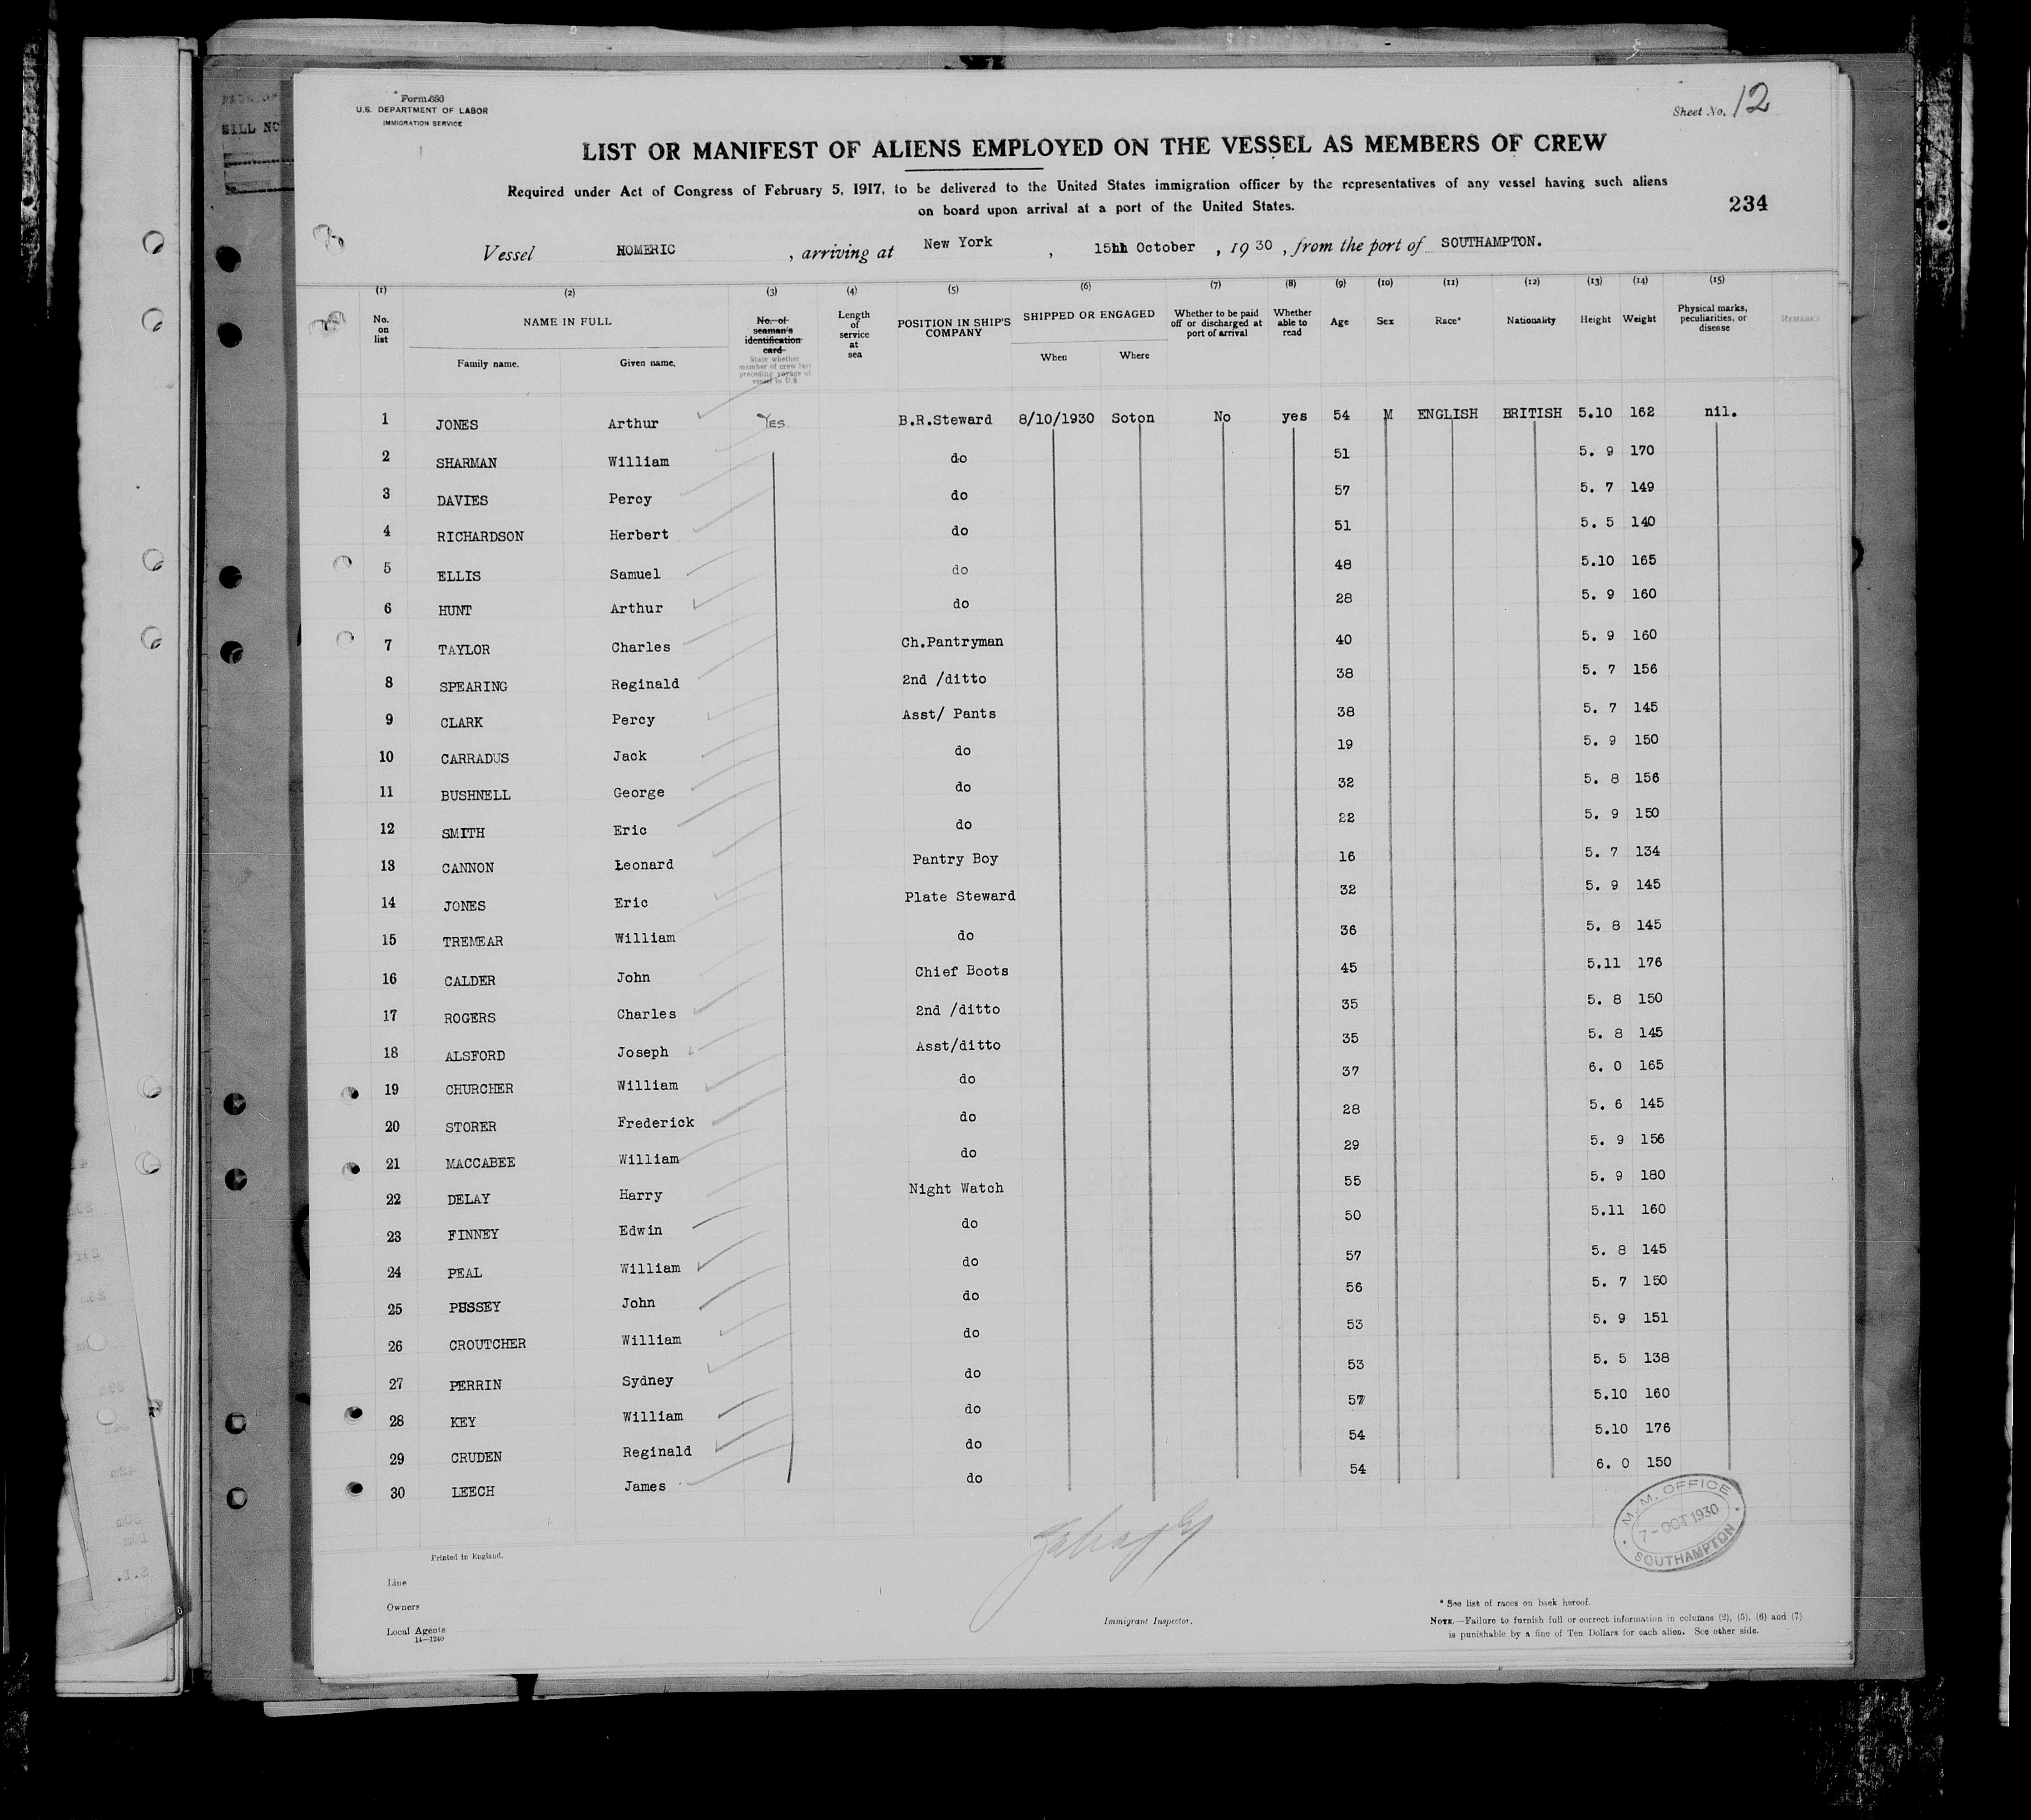 Form 680
U.S. DEPARTMENT OF LABOR
IMMIGRATION SERVICE
Sheet No. 12
LIST OR MANIFEST OF ALIENS EMPLOYED ON THE VESSEL AS MEMBERS OF CREW
Required under Act of Congress of February 5, 1917, to be delivered to the United States immigration officer by the representatives of any vessel having such aliens
on board upon arrival at a port of the United States.
234
Vessel HOMERIC, arriving at New York, 15hh October, 1930, from the port of SOUTHAMPTON.
(1) (2) (3) (4) (5) (6) (7) (8) (9) (10) (11) (12) (13) (14) (15)
No. on list NAME IN FULL Family name. Given name. No. of seaman's identification card State whether member of crew last preceding voyage of vessel to U.S. Length of service at sea POSITION IN SHIP'S COMPANY SHIPPED OR ENGAGED When Where Whether to be paid off or discharged at port of arrival Whether able to read Age Sex Race* Nationality Height Weight Physical marks, peculiarities, or disease REMARKS
1 JONES Arthur Yes. B.R.Steward 8/10/1930 Soton No yes 54 M ENGLISH BRITISH 5.10 162 nil.
2 SHARMAN William do 51 5. 9 170
3 DAVIES Percy do 57 5. 7 149
4 RICHARDSON Herbert do 51 5. 5 140
5 ELLIS Samuel do 48 5.10 165
6 HUNT Arthur do 28 5. 9 160
7 TAYLOR Charles Ch.Pantryman 40 5. 9 160
8 SPEARING Reginald 2nd /ditto 38 5. 7 156
9 CLARK Percy Asst/ Pants 38 5. 7 145
10 CARRADUS Jack do 19 5. 9 150
11 BUSHNELL George do 32 5. 8 156
12 SMITH Eric do 22 5. 9 150
13 CANNON Leonard Pantry Boy 16 5. 7 134
14 JONES Eric Plate Steward 32 5. 9 145
15 TREMEAR William do 36 5. 8 145
16 CALDER John Chief Boots 45 5.11 176
17 ROGERS Charles 2nd /ditto 35 5. 8 150
18 ALSFORD Joseph Asst/ditto 35 5. 8 145
19 CHURCHER William do 37 6. 0 165
20 STORER Frederick do 28 5. 6 145
21 MACCABEE William do 29 5. 9 156
22 DELAY Harry Night Watch 55 5. 9 180
23 FINNEY Edwin do 50 5.11 160
24 PEAL William do 57 5. 8 145
25 PUSSEY John do 56 5. 7 150
26 CROUTCHER William do 53 5. 9 151
27 PERRIN Sydney do 53 5. 5 138
28 KEY William do 57 5.10 160
29 CRUDEN Reginald do 54 5.10 176
30 LEECH James do 54 6. 0 150
M.M. OFFICE
7-OCT 1930
SOUTHAMPTON
Printed in England.
Line
Owners
Local Agents
14—1240
Immigrant Inspector.
* See list of races on back hereof.
NOTE.—Failure to furnish full or correct information in columns (2), (5), (6) and (7)
is punishable by a fine of Ten Dollars for each alien. See other side.
BILL NO